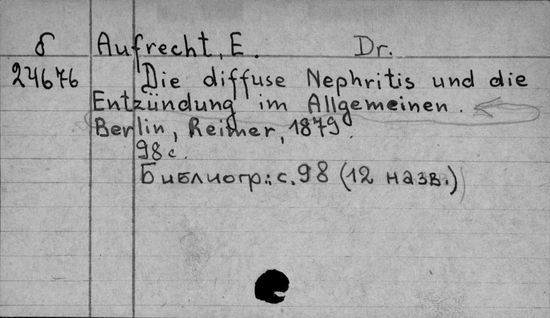 б Aufrecht, E. Dr.
24676 Die diffuse Nephritis und die
Entzündung im Allgemeinen.
Berlin, Reimer, 1879.
98 с.
Библиогр.: с. 98 (12 назв.)